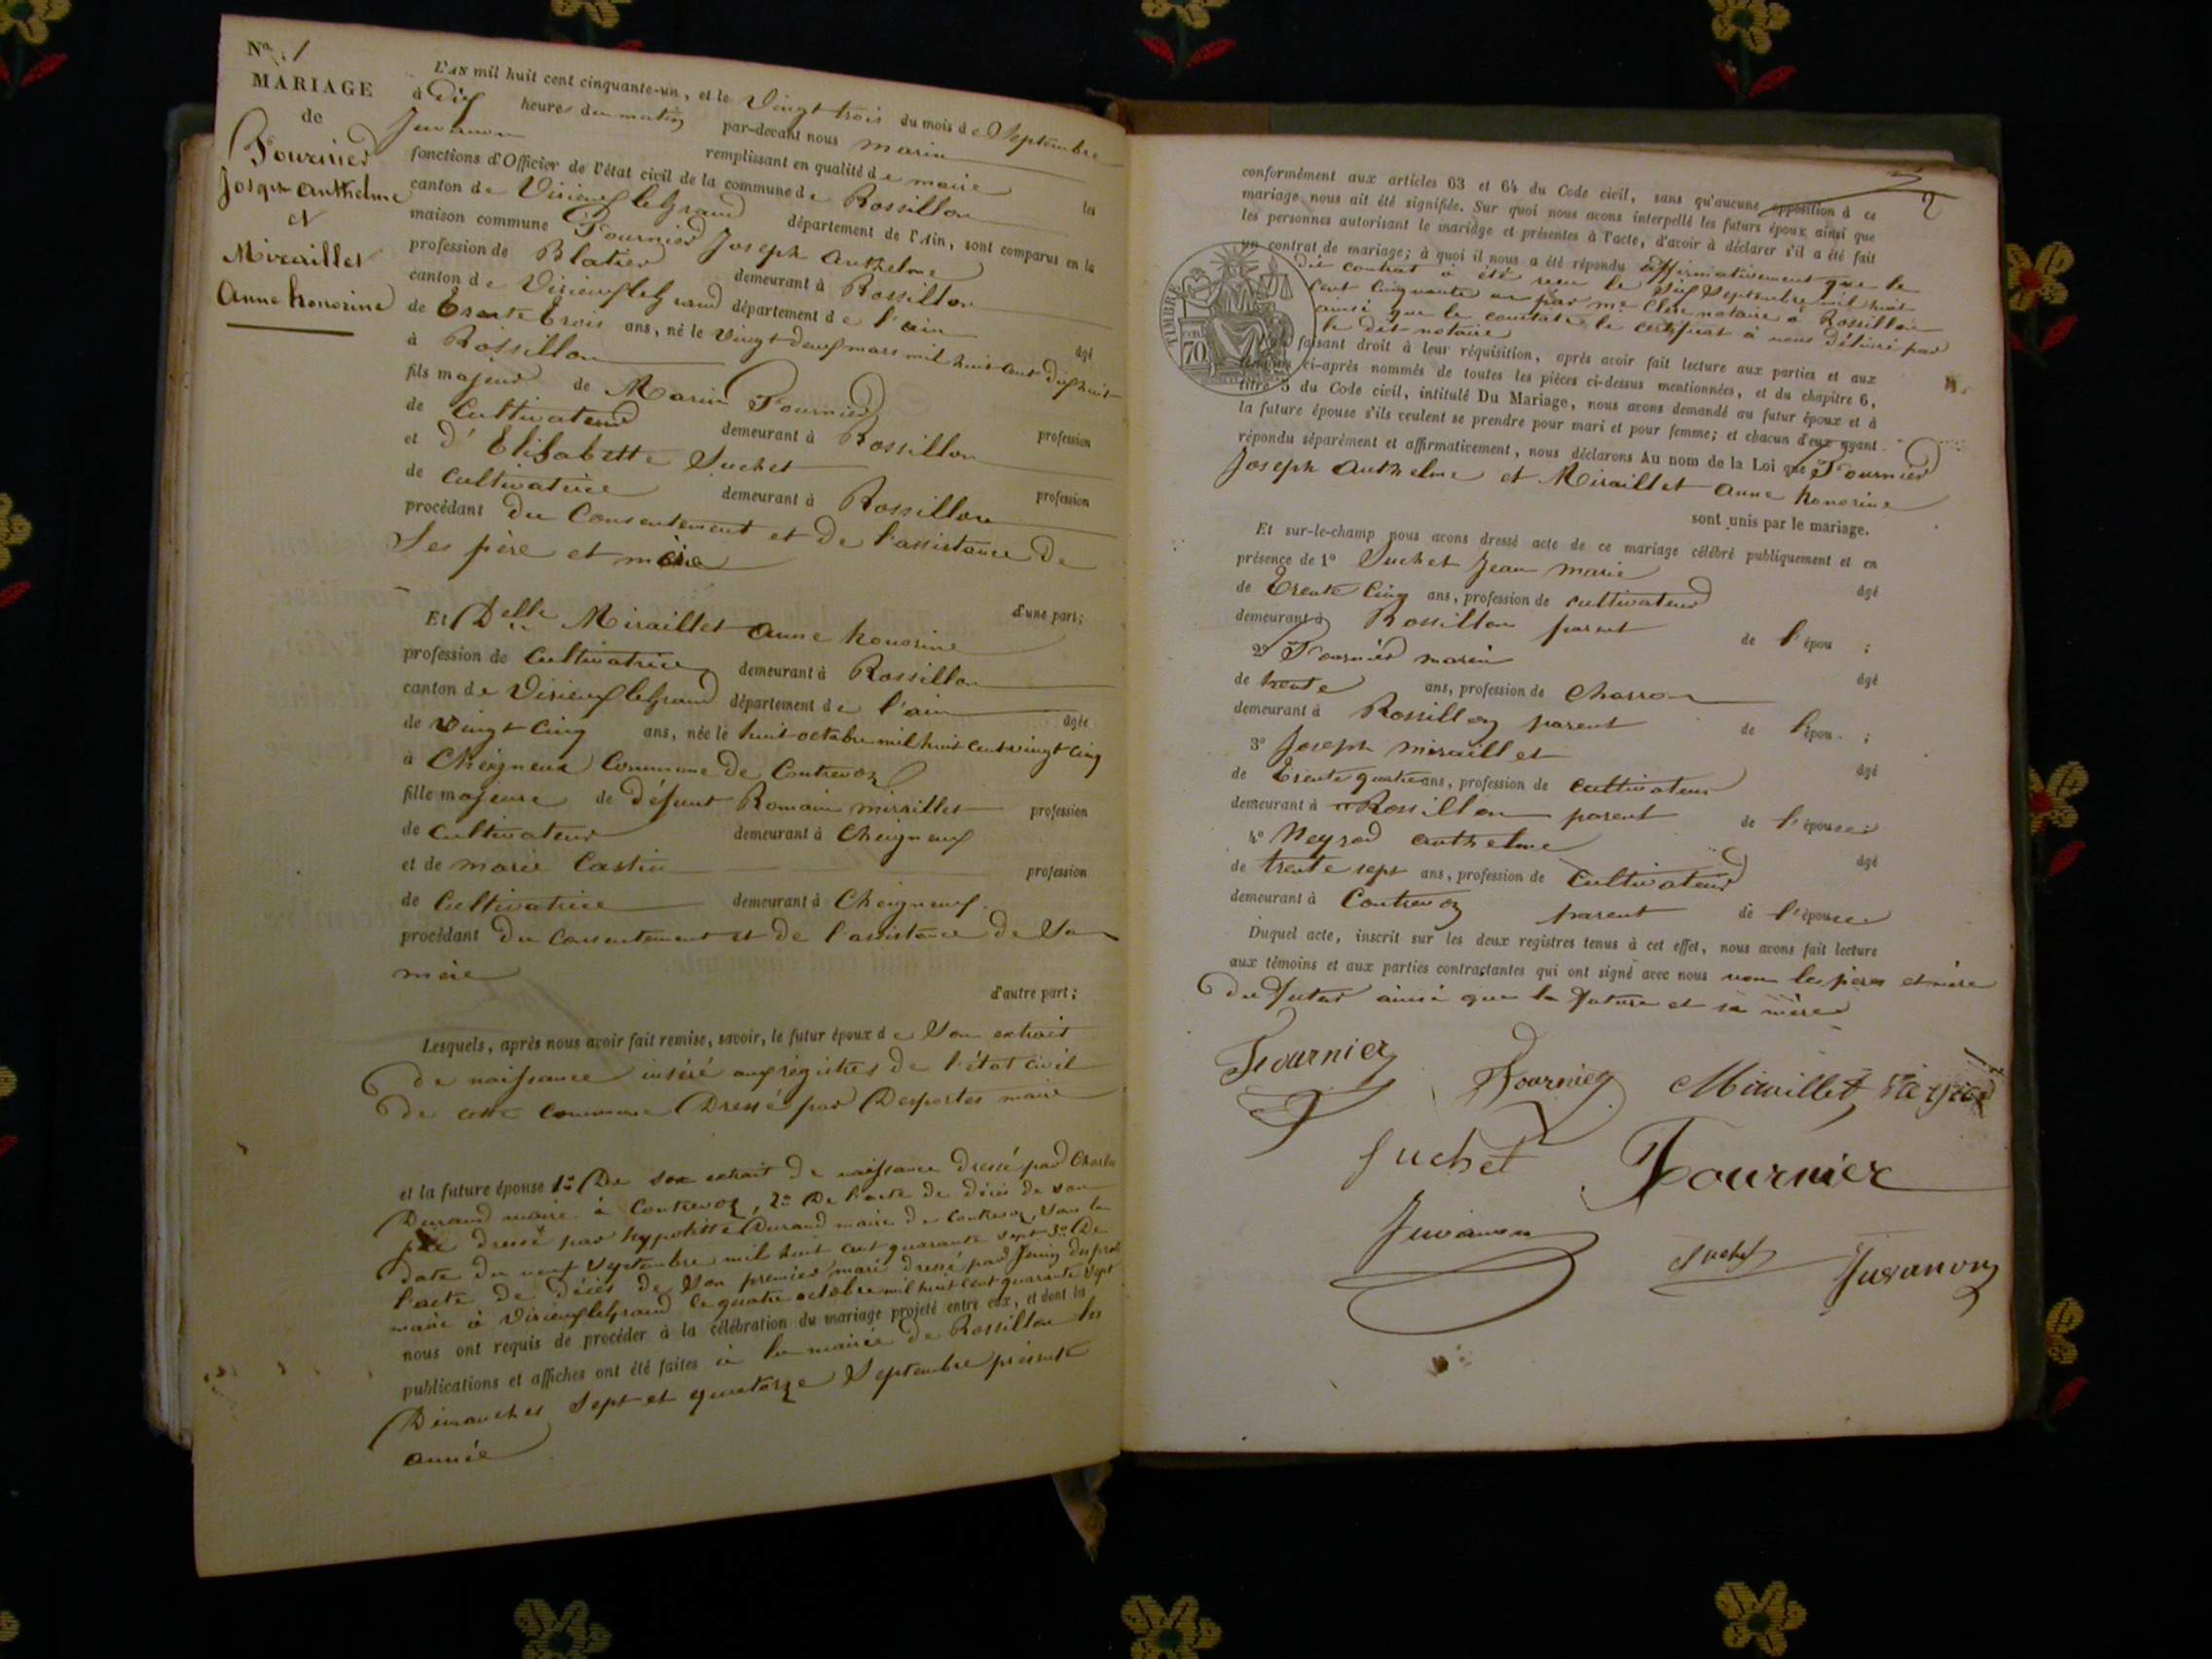 N° 1
MARIAGE
de
Fournier
Joseph Anthelme
et
Miraillet
Anne honorine
L'an mil huit cent cinquante-un, et le Vingt trois du mois de Septembre
à Dix heures du matin par-devant nous marin
Juvanon remplissant en qualité de maire les
fonctions d'Officier de l'état civil de la commune de Rossillon
canton de Virieux le Grand département de l'Ain, sont comparus en la
maison commune Fournier Joseph Anthelme
profession de Blatier demeurant à Rossillon
canton de Virieux le Grand département de l'ain agé
de Trente trois ans, né le vingt deux mars mil huit cent dix huit
à Rossillon
fils majeur de Marin Fournier profession
de Cultivateur demeurant à Rossillon
et d'Elisabette Suchet profession
de Cultivatrice demeurant à Rossillon
procédant du Consentement et de l'assistance de
Ses père et mère
d'une part;
Et Delle Miraillet Anne honorine
profession de Cultivatrice demeurant à Rossillon
canton de Virieux le Grand département de l'ain agée
de vingt cinq ans, née le huit octobre mil huit cent vingt cinq
à Cheigneux Commune de Contrevoz
fille majeure de défunt Romain miraillet profession
de Cultivateur demeurant à Cheigneux
et de marie Castin profession
de Cultivatrice demeurant à Cheigneux
procédant du Consentement et de l'assistance de Sa
mère
d'autre part;
Lesquels, après nous avoir fait remise, savoir, le futur époux de Son extrait
de naissance inséré aux régistres de l'état civil
de cette Commune Dressé par Desportes maire
et la future épouse 1° De son extrait de naissance dressé par Charles
Durand maire à Contrevoz, 2° De l'acte de décès de son
père dressé par hypolitte Durand maire de Contrevoz, sous la
date du neuf Septembre mil huit cent quarante sept 3° De
l'acte de décès de Son premier mari dressé par
maire à Virieux le Grand le quatre octobre mil huit cent quarante sept
nous ont requis de procéder à la célébration du mariage projeté entre eux, et dont les
publications et affiches ont été faites à la mairie de Rossillon les
Dimanches Sept et quatorze Septembre présente
année
2
conformément aux articles 63 et 64 du Code civil, sans qu'aucune opposition à ce
mariage nous ait été signifiée. Sur quoi nous avons interpellé les futurs époux ainsi que
les personnes autorisant le mariage et présentes à l'acte, d'avoir à déclarer s'il a été fait
un contrat de mariage; à quoi il nous a été répondu affirmativement que le
dit contrat a été reçu le dix Septembre mil huit
cent cinquante un par me Clerc notaire à Rossillon
ainsi que le constate le certificat à nous délivré par
le dit notaire
TIMBRE
70
faisant droit à leur réquisition, après avoir fait lecture aux parties et aux
témoins ci-après nommés de toutes les pièces ci-dessus mentionnées, et du chapitre 6,
titre 5 du Code civil, intitulé Du Mariage, nous avons demandé au futur époux et à
la future épouse s'ils veulent se prendre pour mari et pour femme; et chacun d'eux ayant
répondu séparément et affirmativement, nous déclarons Au nom de la Loi que Fournier
Joseph Anthelme et Miraillet Anne honorine
sont unis par le mariage.
Et sur-le-champ nous avons dressé acte de ce mariage célébré publiquement et en
présence de 1° Suchet Jean marie agé
de Trente cinq ans, profession de cultivateur
demeurant à Rossillon parent de l'épou ;
2° Fournier marin agé
de trente ans, profession de Charron
demeurant à Rossillon parent de l'épou ;
3° Joseph miraillet agé
de Trente quatre ans, profession de cultivateur
demeurant à Rossillon parent de l'épouse
4° Neyrod anthelme agé
de trente sept ans, profession de Cultivateur
demeurant à Contrevoz parent de l'épouse
Duquel acte, inscrit sur les deux registres tenus à cet effet, nous avons fait lecture
aux témoins et aux parties contractantes qui ont signé avec nous non les père et mère
du futur ainsi que la future et sa mère
Fournier Fournier Miraillet
Suchet Fournier
Juvanon Suchet Juvanon